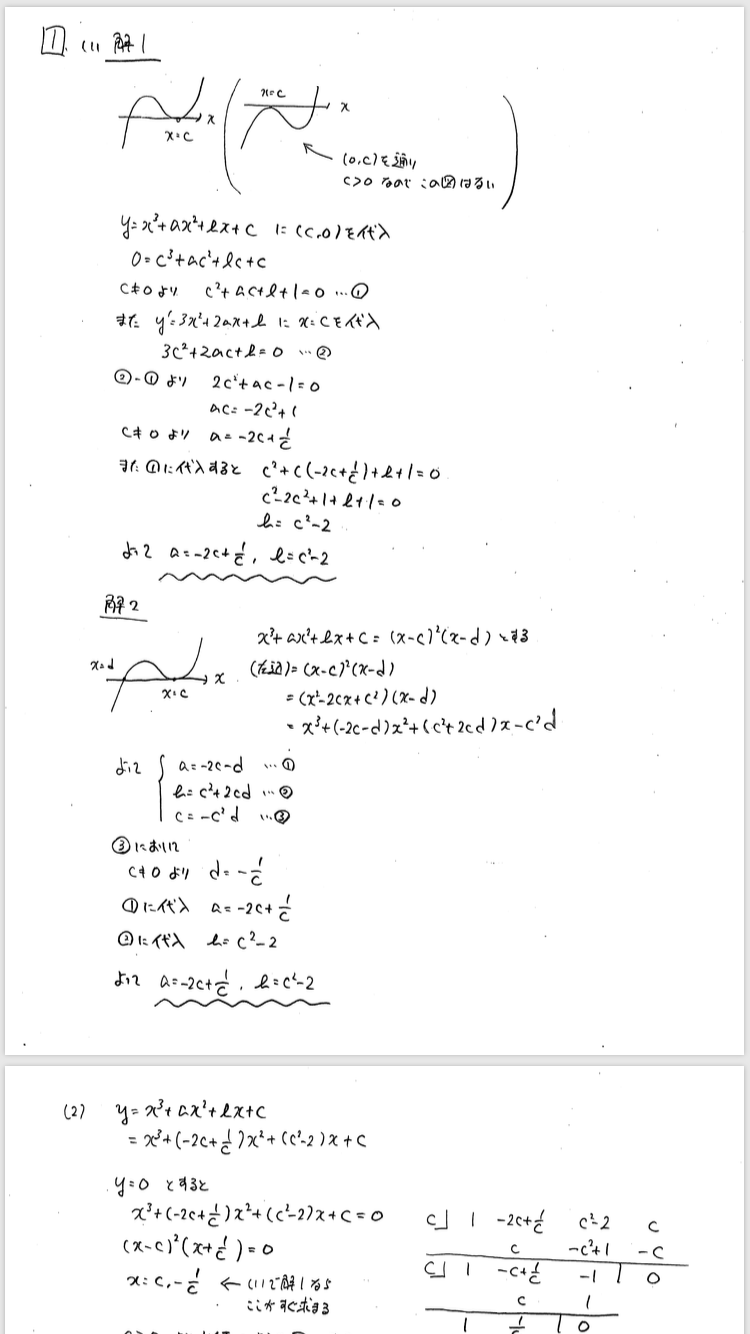 1. (1) 解1
x=c
x
x
x=c
(0,c)を通り
c>0 なので この図はない
y=x³+ax²+bx+c に (c,0)を代入
0=c³+ac²+bc+c
c≠0より c²+ac+b+1=0 …①
また y'=3x²+2ax+b に x=cを代入
3c²+2ac+b=0 …②
②-①より 2c²+ac-1=0
ac=-2c²+1
c≠0より a=-2c+1/c
また①に代入すると c²+c(-2c+1/c)+b+1=0
c²-2c²+1+b+1=0
b=c²-2
よって a=-2c+1/c, b=c²-2
解2
x³+ax²+bx+c=(x-c)²(x-d)とする
x=d
x
x=c
(右辺)=(x-c)²(x-d)
=(x²-2cx+c²)(x-d)
=x³+(-2c-d)x²+(c²+2cd)x-c²d
よって { a=-2c-d …①
b=c²+2cd …②
c=-c²d …③
③において
c≠0より d=-1/c
①に代入 a=-2c+1/c
②に代入 b=c²-2
よって a=-2c+1/c, b=c²-2
(2) y=x³+ax²+bx+c
=x³+(-2c+1/c)x²+(c²-2)x+c
y=0 とすると
x³+(-2c+1/c)x²+(c²-2)x+c=0
(x-c)²(x+1/c)=0
x=c,-1/c ← (1)で解1なら
ここがすぐ求まる
c| 1 -2c+1/c c²-2 c
c -c²+1 -c
c| 1 -c+1/c -1 | 0
c 1
1 1/c | 0